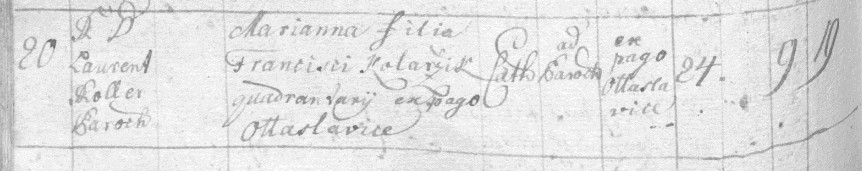 20
R D
Laurent
Koller
Paroch
Marianna filia
Francisci Kolarzik
quadrantarÿ ex pago
Ottaslavice
Cath
ad
Paroch
ex
pago
Ottasla
vice
24.
9
19